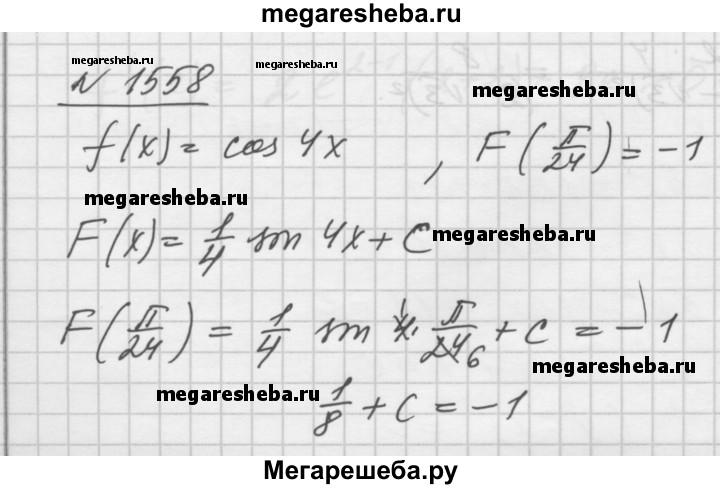 megaresheba.ru
№ 1558
megaresheba.ru megaresheba.ru
megaresheba.ru
f(x) = cos 4x , F(π/24) = -1
megaresheba.ru
F(x) = 1/4 sin 4x + C
megaresheba.ru
F(π/24) = 1/4 sin 4 · π/24 6 + C = -1
megaresheba.ru
megaresheba.ru
1/8 + C = -1
Мегарешеба.ру